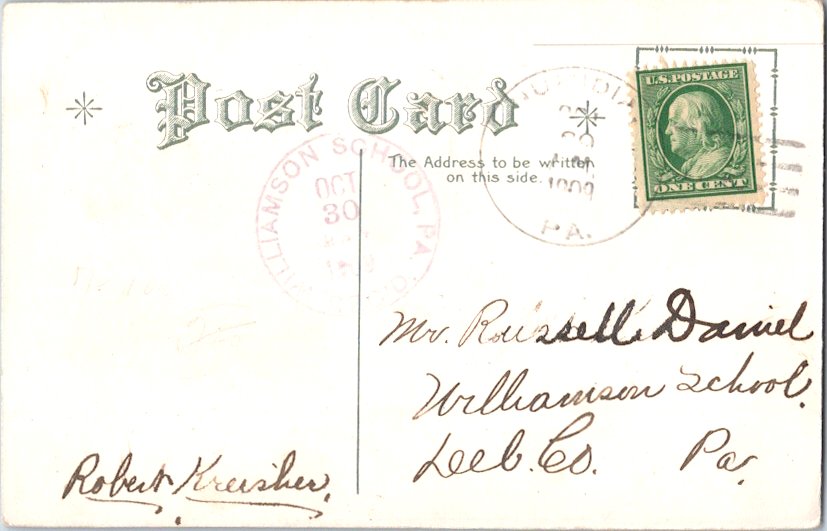 Post Card
The Address to be written
on this side.
U.S. POSTAGE
ONE CENT
WILLIAMSON SCHOOL, PA
OCT
30
1909
PA.
Mr. Russell Daniel
Williamson School.
Del. Co. Pa.
Robert Kreisher.